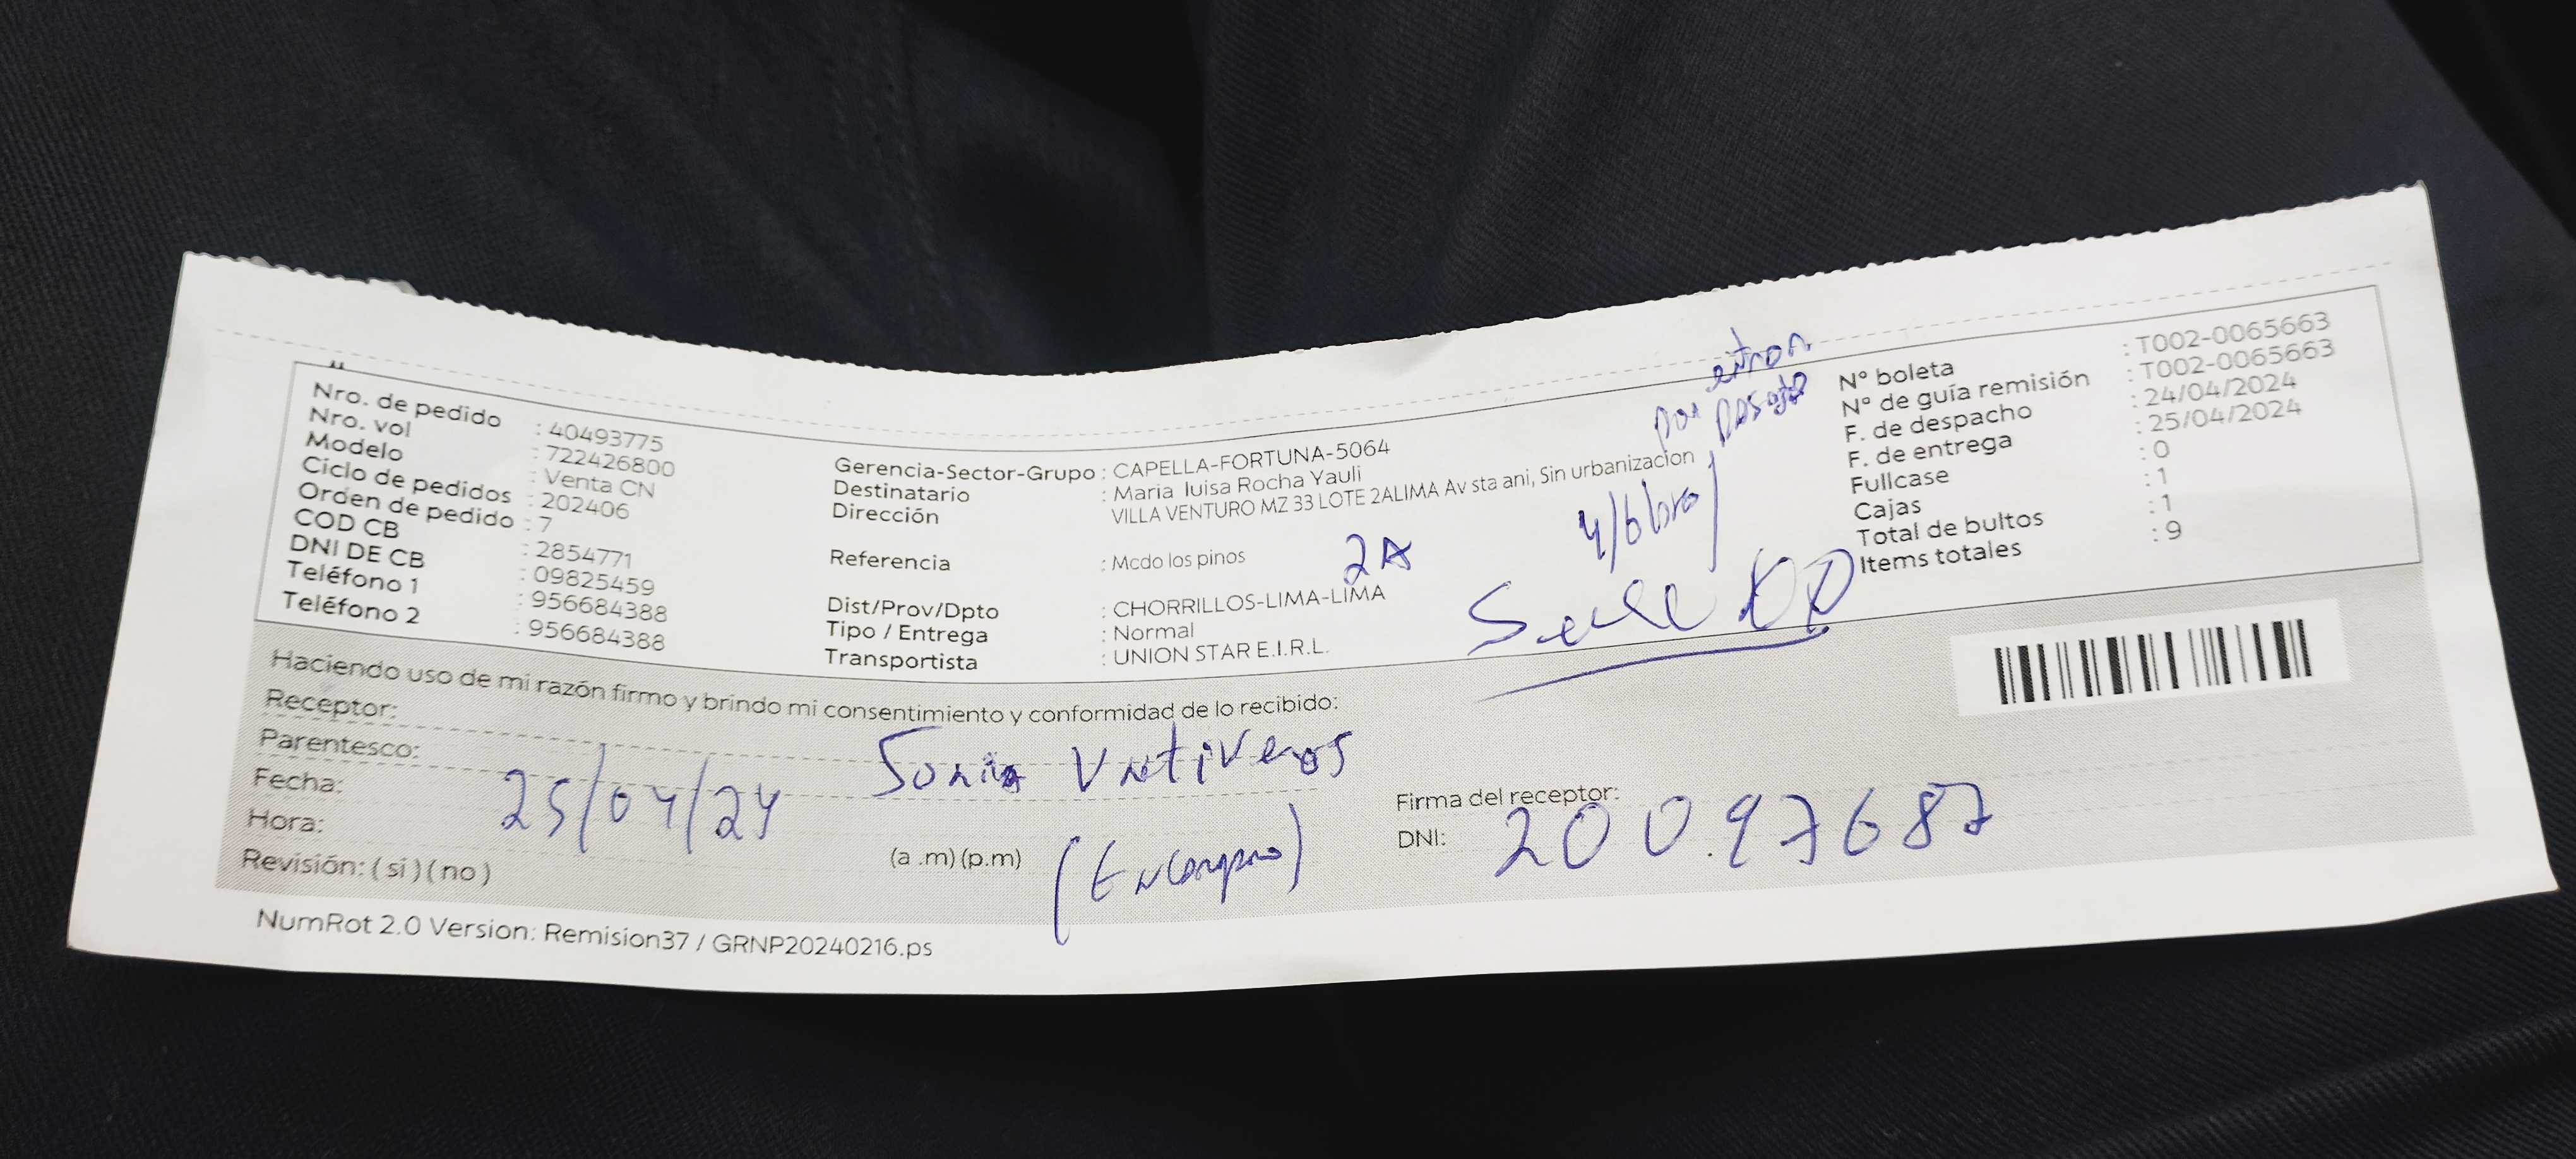 Nro. de pedido : 40493775
Nro. vol : 722426800
Modelo : Venta CN
Ciclo de pedidos : 202406
Orden de pedido : 7
COD CB : 2854771
DNI DE CB : 09825459
Teléfono 1 : 956684388
Teléfono 2 : 956684388
Gerencia-Sector-Grupo : CAPELLA-FORTUNA-5064
Destinatario : Maria luisa Rocha Yauli
Dirección : VILLA VENTURO MZ 33 LOTE 2ALIMA Av sta ani, Sin urbanizacion
Referencia : Mcdo los pinos
2A
Dist/Prov/Dpto : CHORRILLOS-LIMA-LIMA
Tipo / Entrega : Normal
Transportista : UNION STAR E.I.R.L.
por
N° boleta : T002-0065663
N° de guía remisión : T002-0065663
F. de despacho : 24/04/2024
F. de entrega : 25/04/2024
Fullcase : 0
Cajas : 1
Total de bultos : 1
Items totales : 9
Haciendo uso de mi razón firmo y brindo mi consentimiento y conformidad de lo recibido:
Receptor: Sonia Vntiveros
Parentesco:
Fecha: 25/04/24
Hora: (a .m) (p.m)
Revisión: ( si ) ( no )
Firma del receptor:
DNI: 200.97687
NumRot 2.0 Version: Remision37 / GRNP20240216.ps